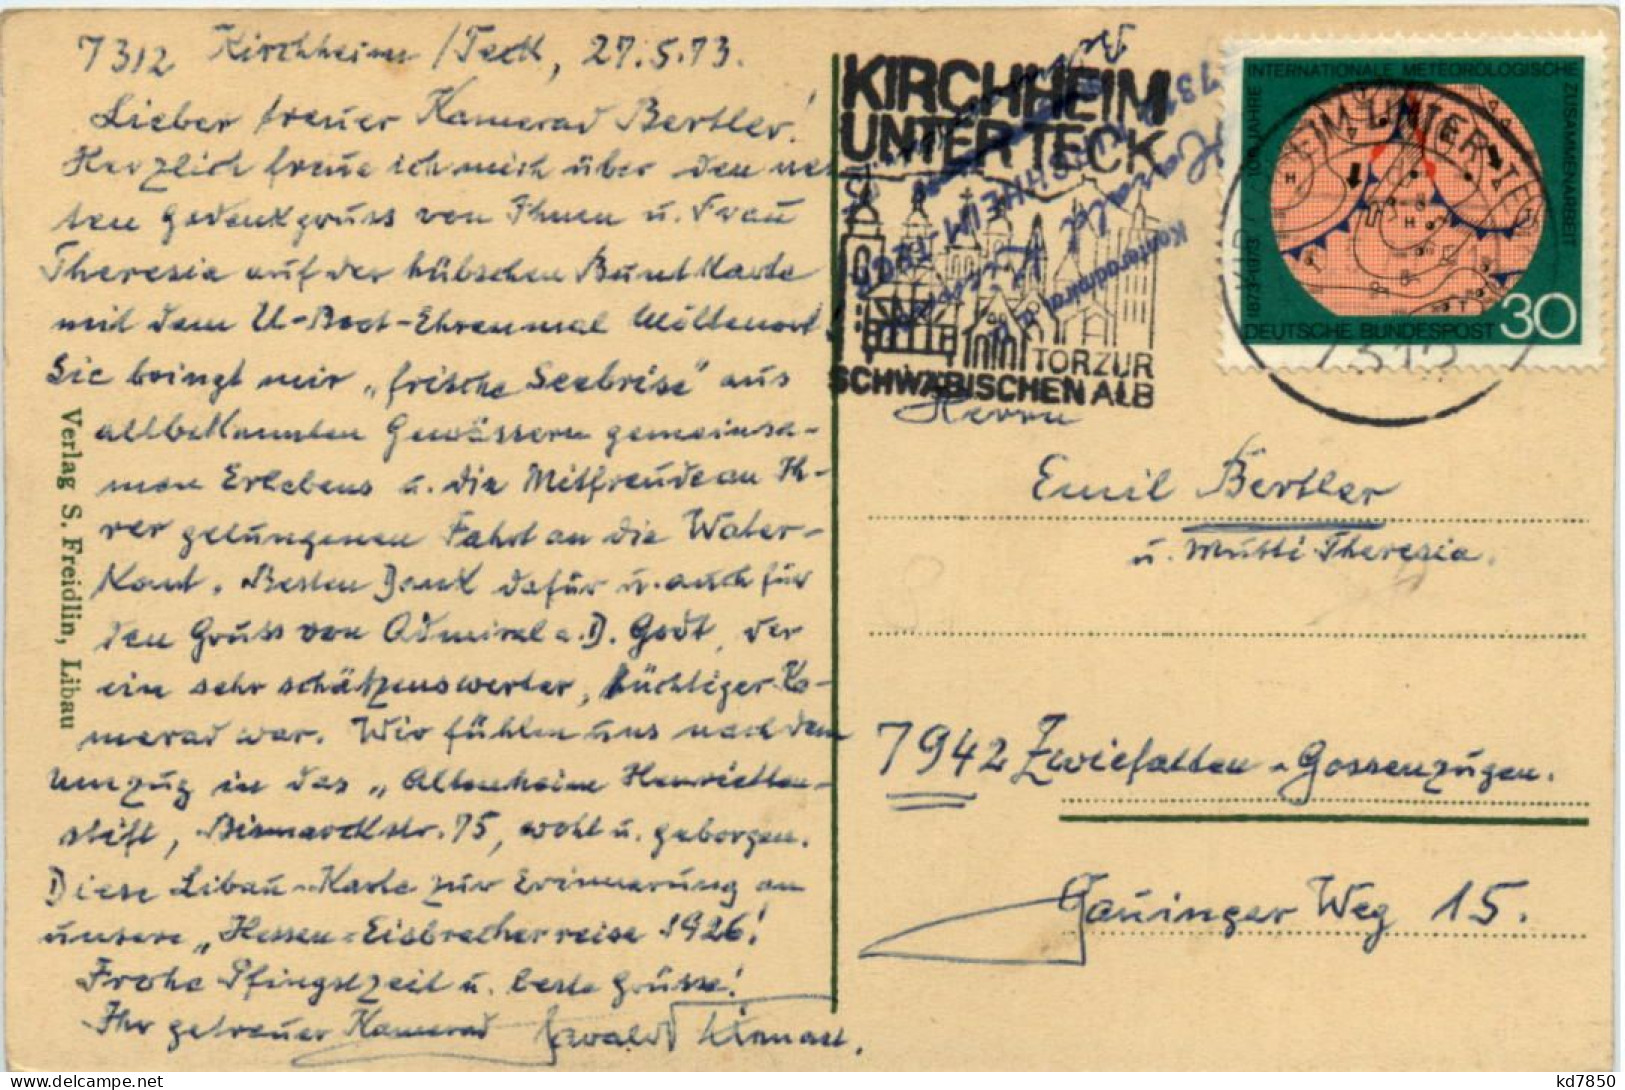 7312 Kirchheim/Teck, 27.5.73.
Lieber treuer Kamerad Bertler!
Herzlich freue ich mich über den net-
ten Gedenkgruss von Ihnen u. Frau
Theresia auf der hübschen Buntkarte
mit dem U-Boot-Ehrenmal Möltenort!
Sie bringt mir „frische Seebrise" aus
altbekannten Gewässern gemeinsa-
men Erlebens u. die Mitfreude an Ih-
rer gelungenen Fahrt an die Water-
kant. Besten Dank dafür u. auch für
den Gruss von Admiral a. D. Godt, der
ein sehr schätzenswerter, tüchtiger Ka-
merad war. Wir fühlen uns nach dem
Umzug in das „Altenheim Henrietten-
stift, Bismarckstr. 75, wohl u. geborgen.
Diese Libau-Karte zur Erinnerung an
unsere „Hessen-Eisbrecherreise 1926!
Frohe Pfingstzeit u. beste Grüsse!
Ihr getreuer Kamerad
Verlag S. Freidlin, Libau
KIRCHHEIM
UNTER TECK
TOR ZUR
SCHWÄBISCHEN ALB
Konteradmiral
100 JAHRE INTERNATIONALE METEOROLOGISCHE ZUSAMMENARBEIT
1873-1973
DEUTSCHE BUNDESPOST 30
7312
Herrn
Emil Bertler
u. Mutti Theresia.
7942 Zwiefalten-Gossenzugen.
Gauinger Weg 15.
kd7850